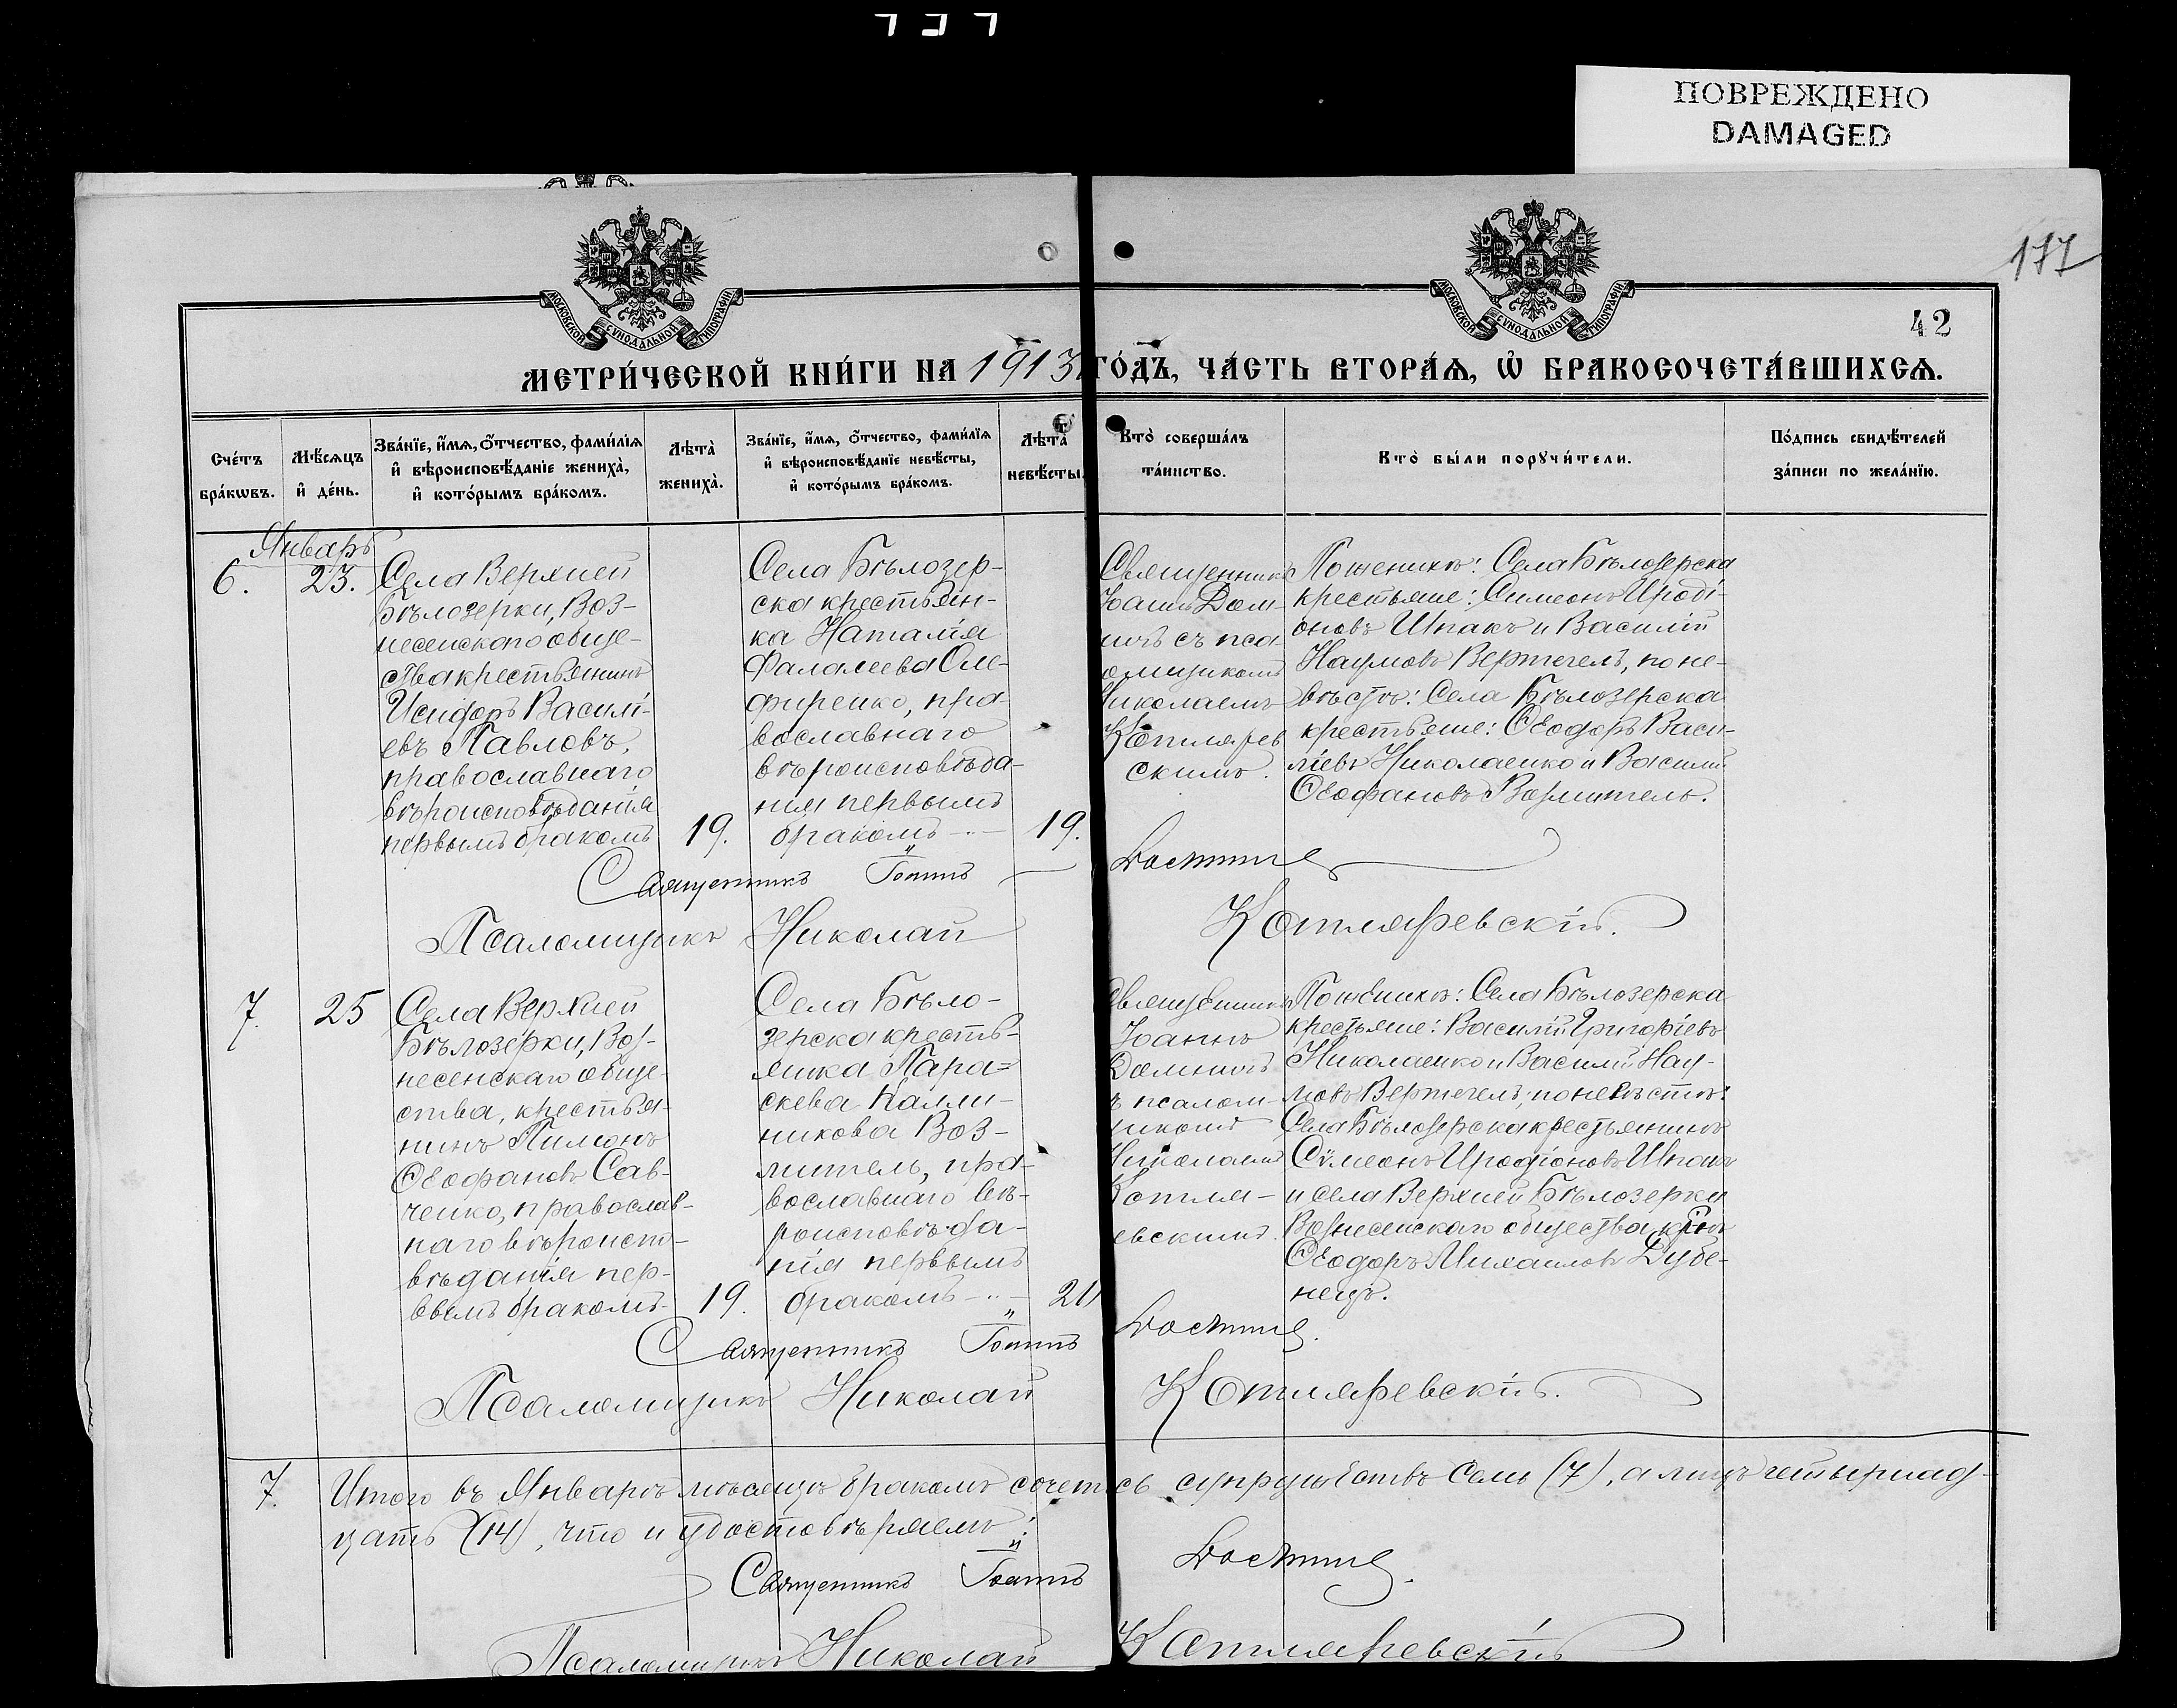 ПОВРЕЖДЕНО
DAMAGED
177
42
МОСКОВСКОЙ СѴНОДАЛЬНОЙ ТИПОГРАФІИ
МОСКОВСКОЙ СѴНОДАЛЬНОЙ ТИПОГРАФІИ
МЕТРИ́ЧЕСКОЙ КНИ́ГИ НА 1913 ГО́ДЪ, ЧА́СТЬ ВТОРА́Я, Ѡ БРАКОСОЧЕТА́ВШИХСЯ.
Сче́тъ
бра́кѡвъ.
Мѣ́сяцъ
и҆ де́нь.
Зва́нїе, и҆́мя, ѻ҆́тчество, фами́лїя
и҆ вѣроисповѣ́данїе жениха̀,
и҆ кото́рымъ бра́комъ.
Лѣта̀
жениха̀.
Зва́нїе, и҆́мя, ѻ҆́тчество, фами́лїя
и҆ вѣроисповѣ́данїе невѣ́сты,
и҆ кото́рымъ бра́комъ.
Лѣта̀
невѣ́сты.
Кто̀ соверша́лъ
та́инство.
Кто̀ бы́ли порꙋчи́тели.
По́дпись свидѣ́телей
за́писи по жела́нїю.
Январь
6.
23.
Села Верхней
Бѣлозерки, Воз-
несенскаго обще-
ства крестьянинъ
Исидоръ Васильї-
евъ Павловъ,
православнаго
вѣроисповѣданія
первымъ бракомъ
19.
Села Бѣлозер-
ска крестьян-
ка Наталія
Фалалеева Оле-
фиренко, пра-
вославнаго
вѣроисповѣда-
нія первымъ
бракомъ
19.
Священникъ
Іоаннъ Дом-
съ пса-
ломщикомъ
Николаемъ
Котлярев
скимъ.
По женихѣ: Села Бѣлозерска
крестьяне: Симеонъ Иродї-
оновъ Шпакъ и Василій
Наумовъ Вертегелъ, по не-
вѣстѣ: Села Бѣлозерска
крестьяне: Ѳеодоръ Васи-
ліевъ Николаенко и Василій
Ѳеофановъ Возлитель.
Священникъ Іоаннъ
Псаломщикъ Николай Котляревскій.
7.
25
Села Верхней
Бѣлозерки, Воз-
несенскаго обще-
ства, крестья-
нинъ Пименъ
Ѳеофановъ Сав-
ченко, православ-
наго вѣроиспо-
вѣданія пер-
вымъ бракомъ
19.
Села Бѣло-
зерска кресть-
янка Пара-
скева Калли-
никова Воз-
литель, пра-
вославнаго вѣ-
роисповѣда-
нія первымъ
бракомъ
21
Священникъ
Іоаннъ
ъ псалом-
щикомъ
Николаемъ
Котля-
евскимъ.
По женихѣ: Села Бѣлозерска
крестьяне: Василій Григорїевъ
Николаенко и Василій Нау-
мовъ Вертегелъ; по невѣстѣ:
Села Бѣлозерска крестьянинъ
Сѵмеонъ Иродіоновъ Шпакъ
и села Верхней Бѣлозерки
Вознесенскаго общества кр-нъ
Ѳеодоръ Михаиловъ Дубе-
нецъ.
Священникъ Іоаннъ
Псаломщикъ Николай Котляревскій.
7. Итого въ Январѣ мѣсяцѣ бракомъ сочет сь супружествъ семь (7), а лицъ четырнад-
цать (14), что и удостовѣряемъ:
Священникъ Іоаннъ
Псаломщикъ Николай Котляревскій